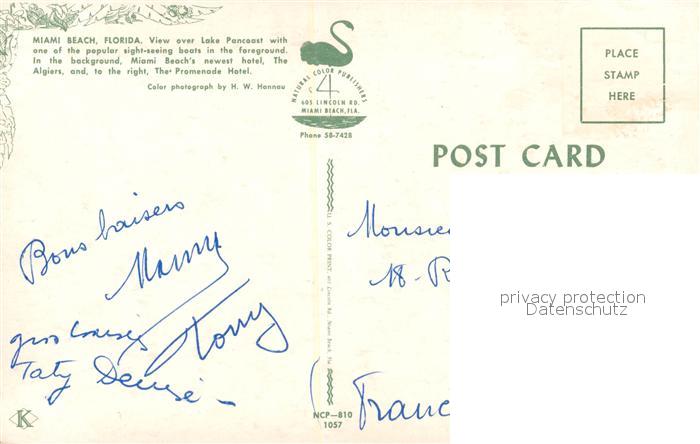 MIAMI BEACH, FLORIDA. View over Lake Pancoast with
one of the popular sight-seeing boats in the foreground.
In the background, Miami Beach's newest hotel, The
Algiers, and, to the right, The Promenade Hotel.
Color photograph by H. W. Hannau
NATURAL COLOR PUBLISHERS
4
605 LINCOLN RD.
MIAMI BEACH, FLA.
Phone 58-7428
PLACE
STAMP
HERE
POST CARD
Bons baisers
gros baisers
Taty Denise
U. S. COLOR PRINT, 605 Lincoln Rd., Miami Beach, Fla.
Monsieu
18 - R
Franc
privacy protection
Datenschutz
K
NCP-810
1057